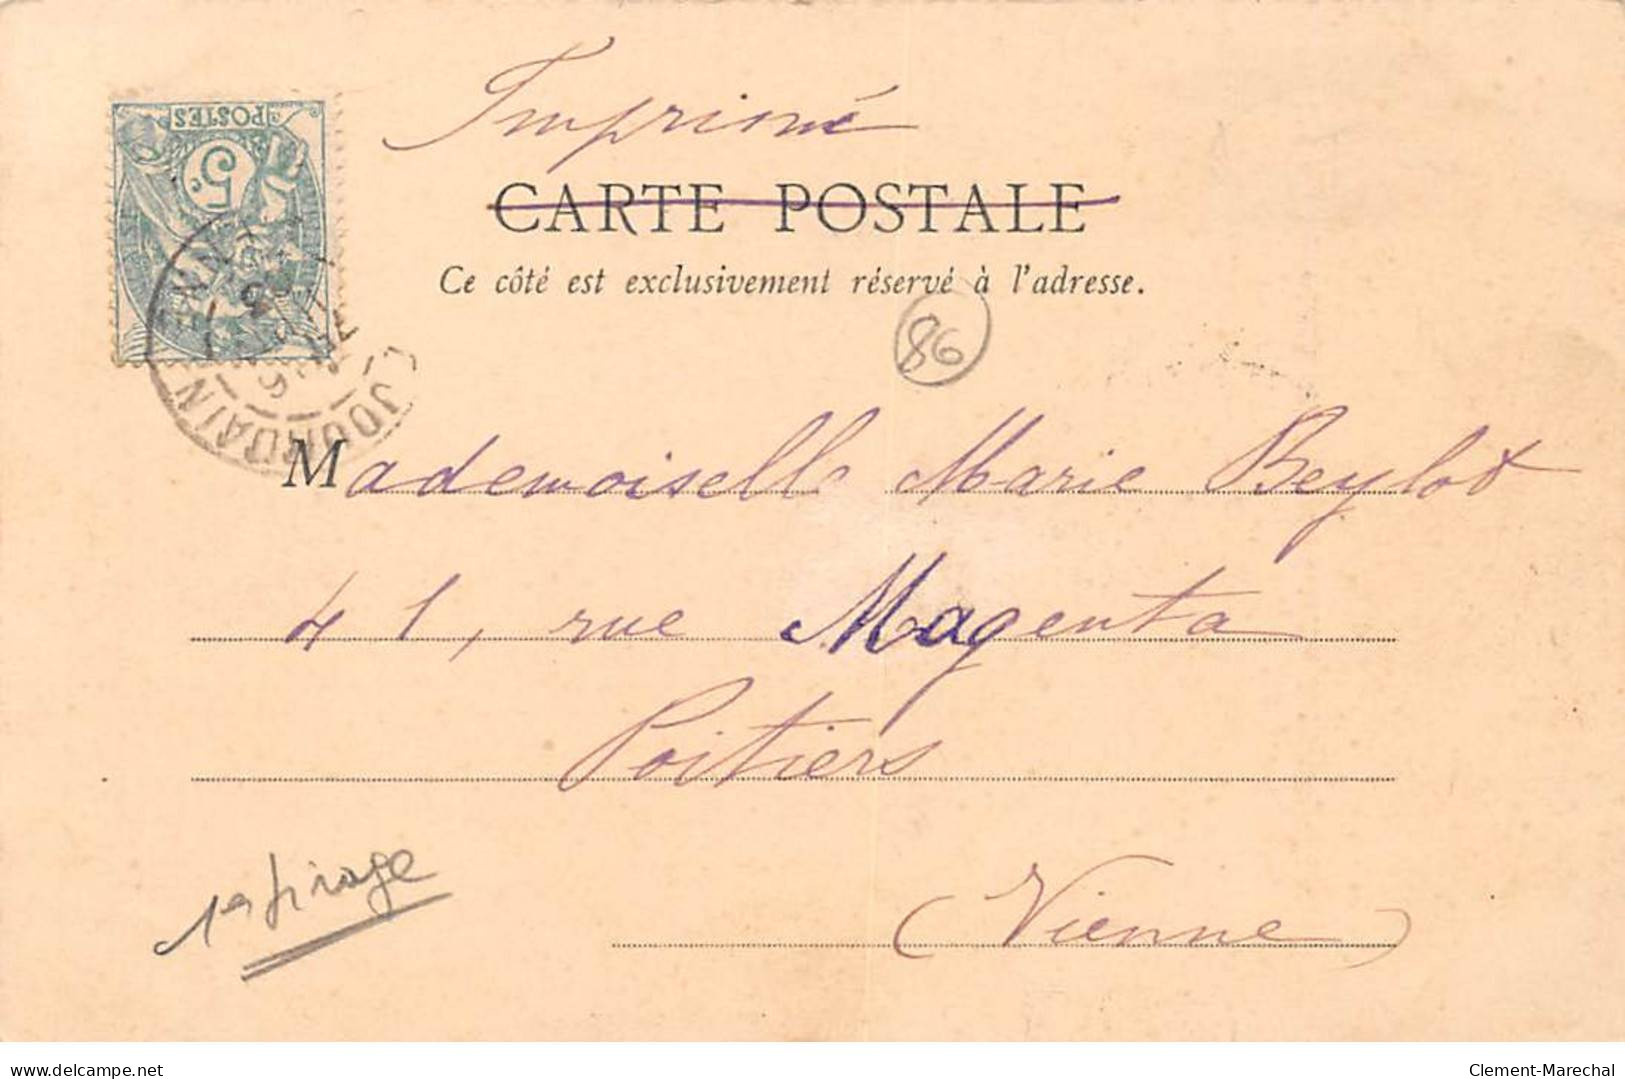 Imprimé
POSTES
5c
CARTE POSTALE
Ce côté est exclusivement réservé à l'adresse.
86
JOURDAIN
Mademoiselle Marie Beylot
41, rue Magenta
Poitiers
1er tirage
(Vienne)
delcampe.net
Clement-Marechal